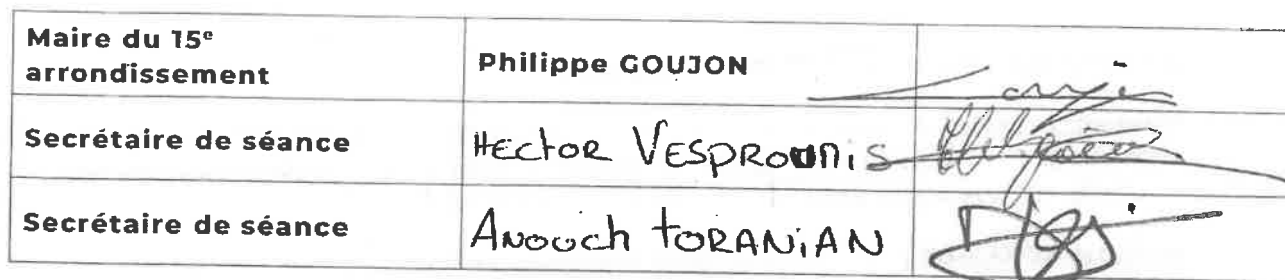 Maire du 15e
arrondissement
Philippe GOUJON
Secrétaire de séance
HECtoR VESPROUNiS
Secrétaire de séance
ANOUCh tORANiAN